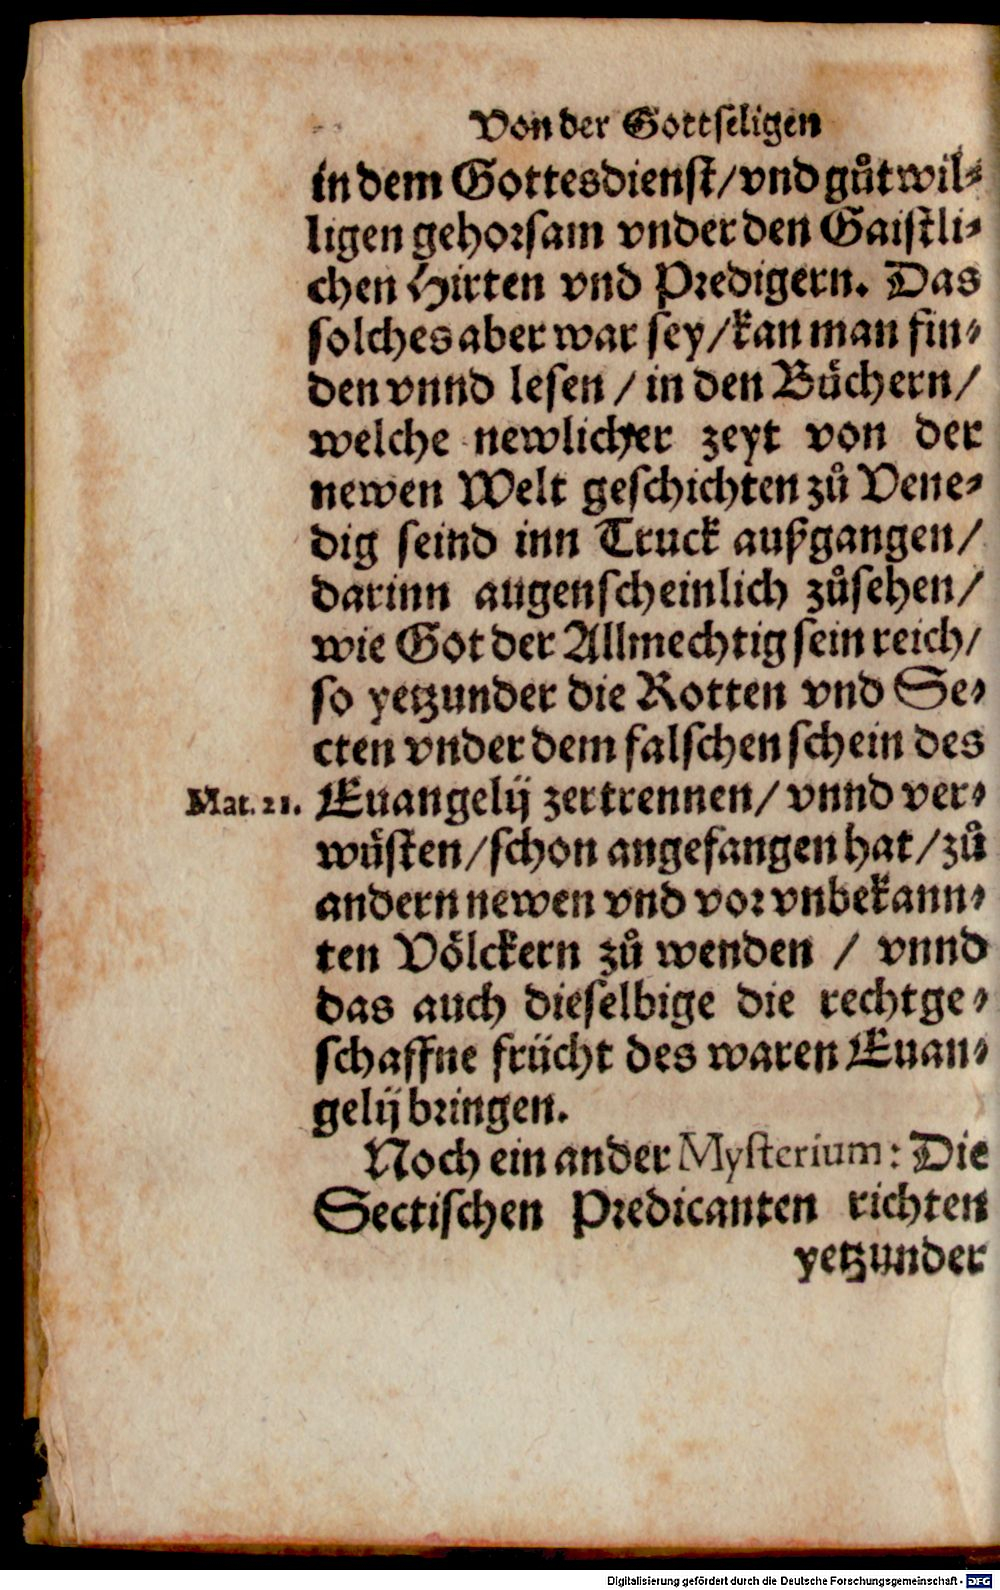 Von der Gottseligen
in dem Gottesdienst/vnd gůtwil⸗
ligen gehorsam vnder den Gaistli⸗
chen Hirten vnd Predigern. Das
solches aber war sey/kan man fin⸗
den vnnd lesen / in den Büchern/
welche newlicher zeyt von der
newen Welt geschichten zů Vene⸗
dig seind inn Truck außgangen/
darinn augenscheinlich zůsehen/
wie Got der Allmechtig sein reich/
so yetzunder die Rotten vnd Se⸗
cten vnder dem falschen schein des
Mat. 21. Euangelij zertrennen/ vnnd ver⸗
wüsten/schon angefangen hat/zů
andern newen vnd vor vnbekann⸗
ten Völckern zů wenden / vnnd
das auch dieselbige die rechtge⸗
schaffne frücht des waren Euan⸗
gelij bringen.
Noch ein ander Mysterium: Die
Sectischen Predicanten richten
yetzunder
Digitalisierung gefördert durch die Deutsche Forschungsgemeinschaft - DFG